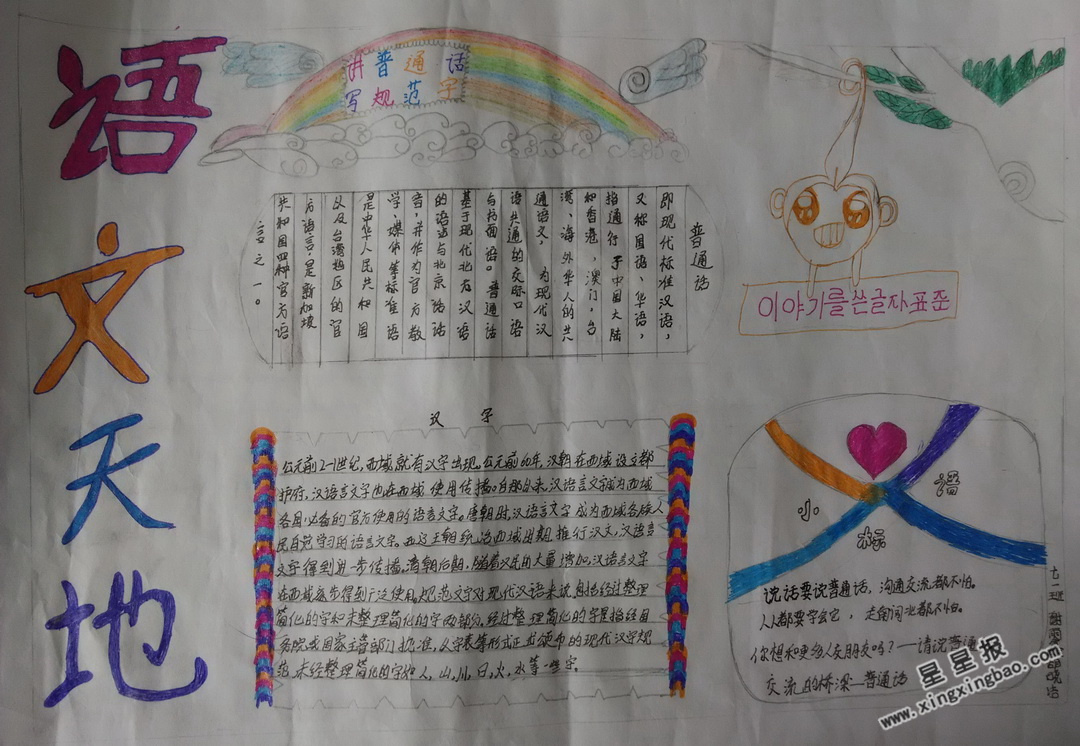 语文天地
讲普通话
写规范字
普通话
即现代标准汉语，
又称国语、华语，
指通行于中国大陆
和香港、澳门、台
湾、海外华人的共
通语文，为现代汉
语共通的交际口语
与书面语。普通话
基于现代北方汉语
的语法与北京话语
音，并作为官方教
学、媒体等标准语
是中华人民共和国
以及台湾地区的官
方语言，是新加坡
共和国四种官方语
言之一。
이야기를쓴글자표준
汉字
公元前2-1世纪，西域就有汉字出现。公元前60年，汉朝在西域设立都
护府，汉语言文字也在西域使用传播。自那以来，汉语言文字成为西域
各国必备的官方使用的语言文字。唐朝时，汉语言文字成为西域各族人
民自觉学习的语言文字。西辽王朝统治西域时期推行汉文，汉语言
文字得到进一步传播。清朝后期，随着汉民的大量增加，汉语言文字
在西域逐步得到广泛使用。规范文字对现代汉语来说包括经过整理
简化的字和未整理简化的字两部分。经过整理简化的字是指经国
务院或国家主管部门批准，以字表等形式正式颁布的现代汉字规
范，未经整理简化的字如人，山，川，日，火，水等一些字。
小标语
说话要说普通话，沟通交流都不怕。
人人都要学会它，走南闯北都不怕。
你想和更多人交朋友吗？——请说普通
交流的桥梁—普通话
七一班 谢
晓浩
星星报
www.xingxingbao.com